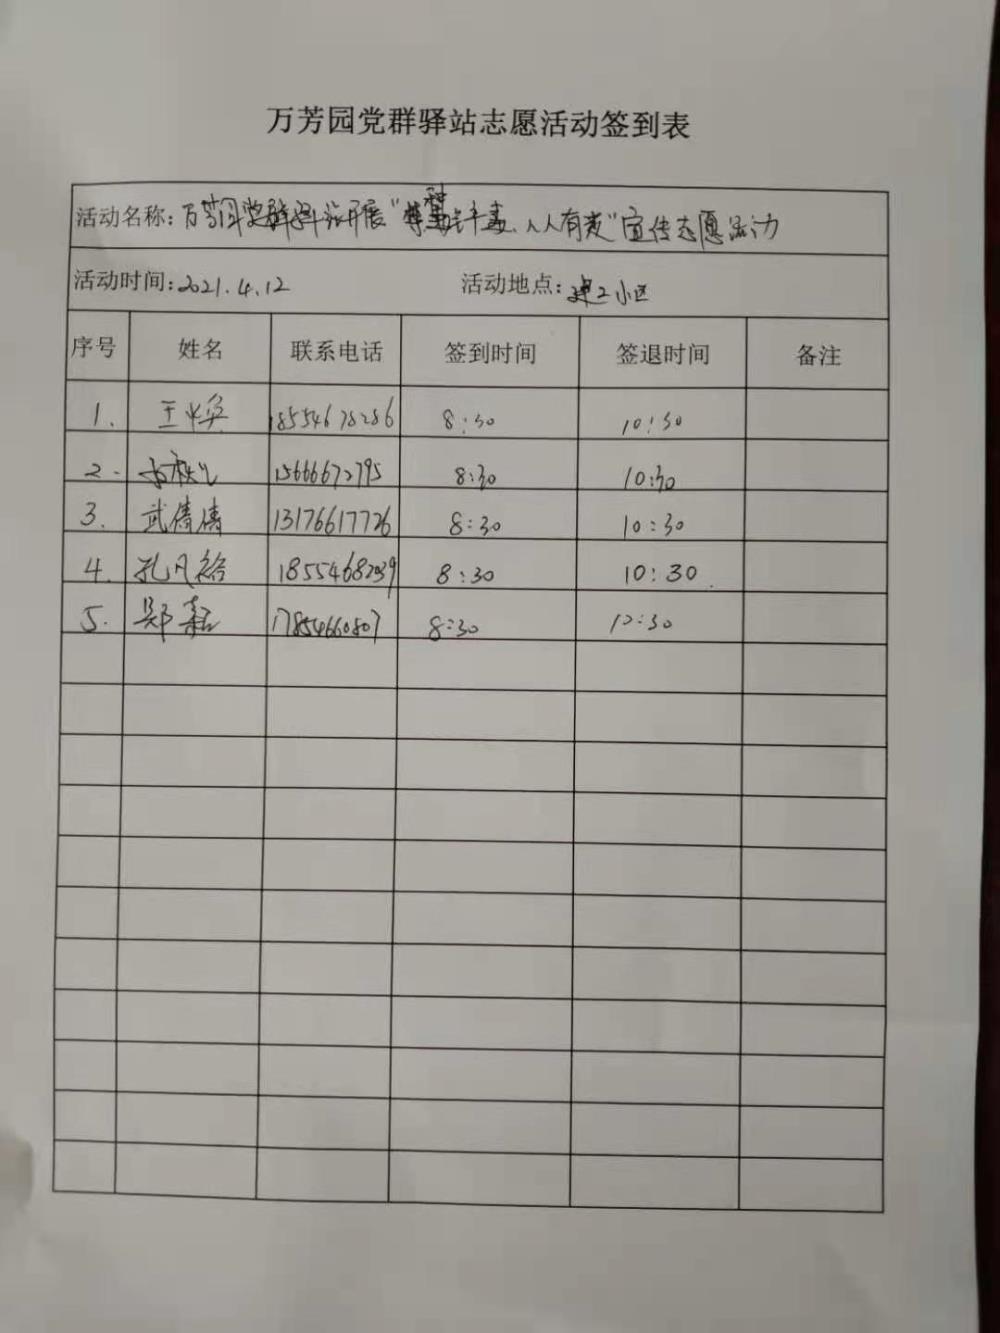 万芳园党群驿站志愿活动签到表
活动名称:万芳园党群驿站开展"禁种铲毒、人人有责"宣传志愿活动
活动时间:2021.4.12 活动地点:建工小区
序号 姓名 联系电话 签到时间 签退时间 备注
1. 王焕 18554678286 8:30 10:30
2. 15666672795 8:30 10:30
3. 武倩倩 13176617726 8:30 10:30
4. 孔凡裕 8:30 10:30
5. 郑 17854660807 8:30 10:30